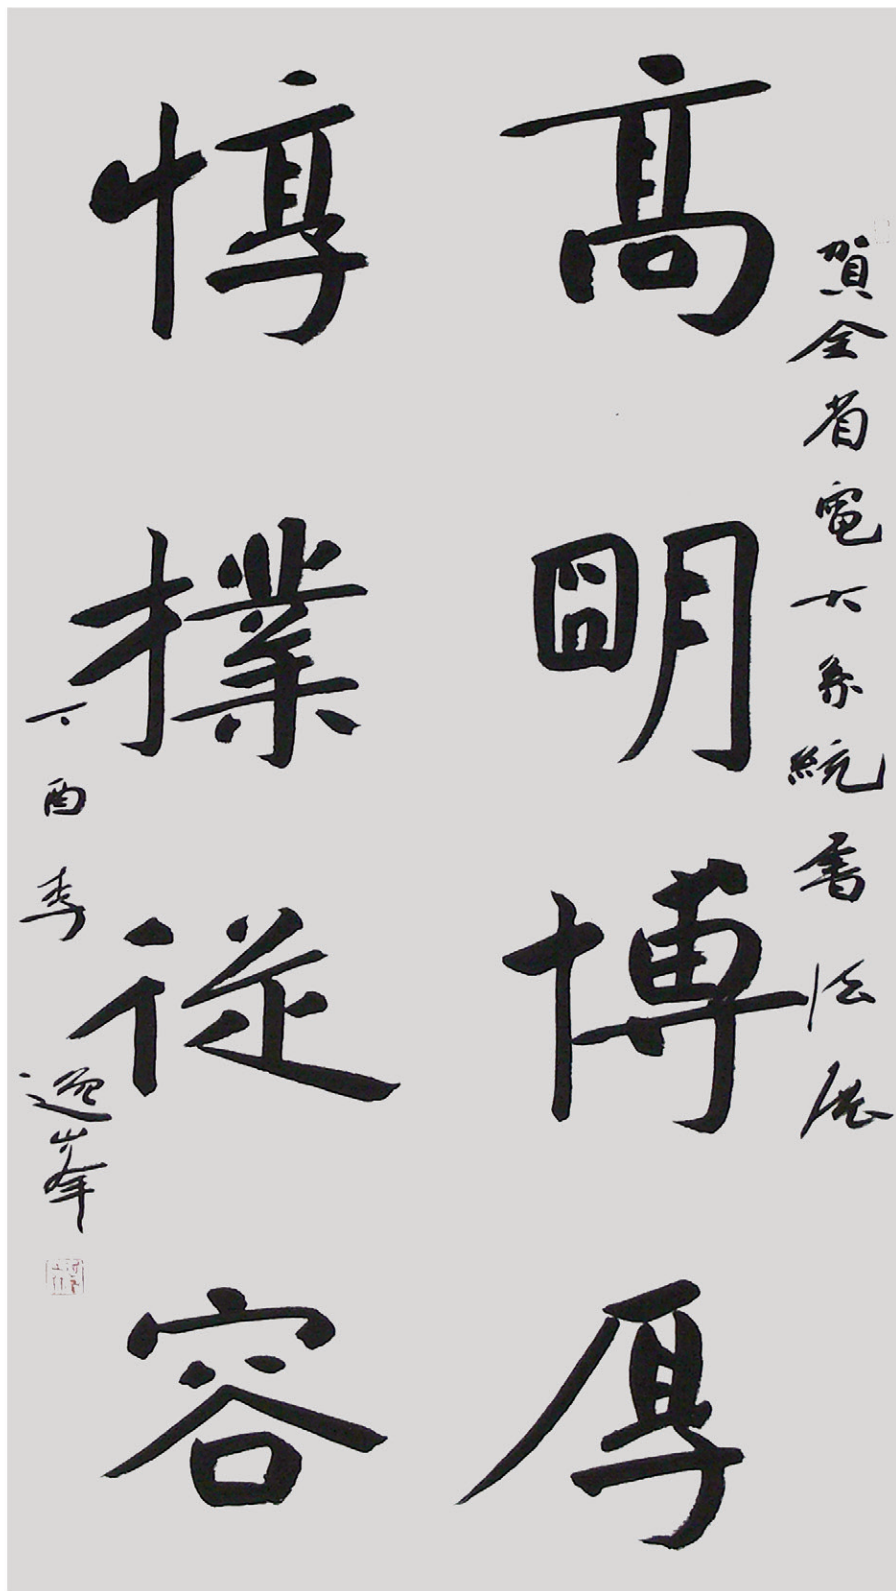 賀全省電大系統書法展
高明博厚
惇樸從容
丁酉李逸峰